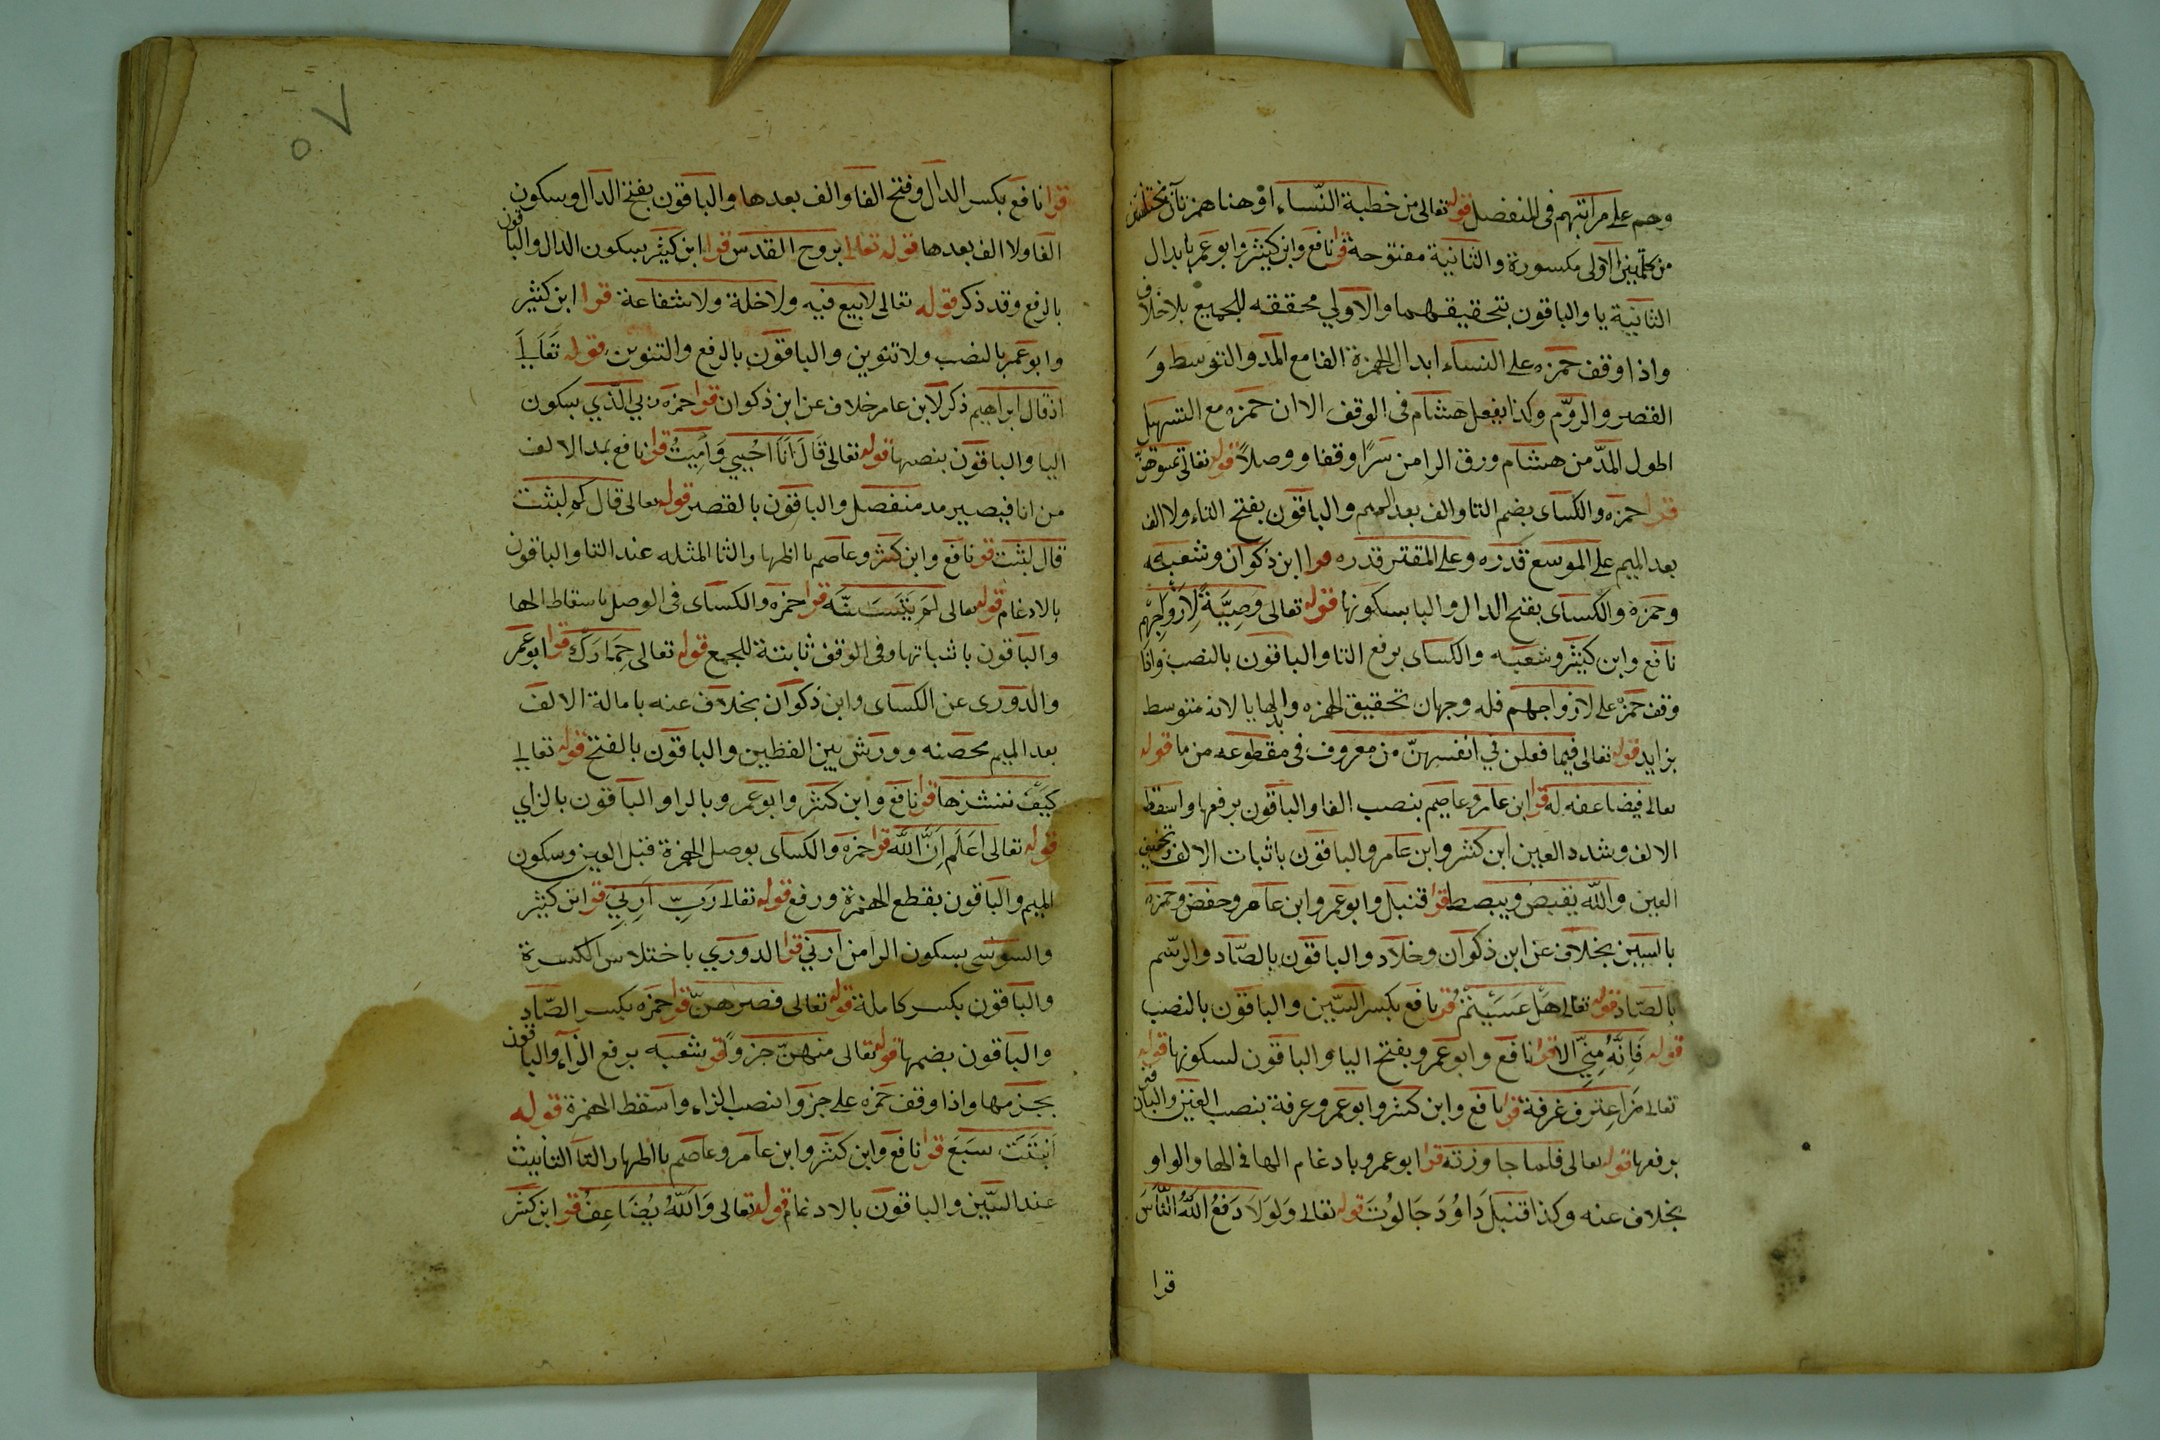 وهم على مراتبهم في المنفصل قوله تعالى من خطبة النساء او هنا همزتان مختلفتين
من كلمتين الاولى مكسورة والثانية مفتوحة قرا نافع وابن كثير وابو عمر بابدال
الثانية يا والباقون بتحقيقهما والاولي محققه للجميع بلا خلاف
واذا وقف حمزه على النساء ابدال الهمزة الفا مع المد والتوسط و
القصر والروم وكذا يفعل هشام في الوقف الا ان حمزه مع التسهيل
اطول المد من هشام ورق الرا من سرا وقفا ووصلا قوله تعالى تمسوهن
قرا حمزه والكساى بضم التا والف بعد الميم والباقون بفتح التاء ولا الف
بعد الميم على الموسع قدره وعلى المقتر قدره قرا ابن ذكوان وشعبه
وحمزة والكساى بفتح الدال والبا بسكونها قوله تعالى وصية لازواجهم
نافع وابن كثير وشعبه والكساى برفع التا والباقون بالنصب واذا
وقف حمزه على لازواجهم فله وجهان تحقيق الهمزه وابدالها يا لانه متوسط
بزايد قوله تعالى فيما فعلن في انفسهن من معروف في مقطوعه من ما قوله
تعالى فيضاعفه له قرا ابن عامر وعاصم بنصب الفا والباقون برفعها واسقط
الالف وشدد العين ابن كثير وابن عامر والباقون باثبات الالف وتخفيف
العين والله يقبض ويبصط قرا قنبل وابو عمرو وابن عامر وحفص وحمزه
بالسين بخلاف عن ابن ذكوان وخلاد والباقون بالصاد والرسم
بالصاد قوله تعالى هل عسيتم قرا نافع بكسر السين والباقون بالنصب
قوله فانه مني الا قرا نافع وابو عمرو بفتح اليا والباقون لسكونها قوله
تعالى من اعترف غرفة قرا نافع وابن كثير وابو عمرو وعرفة بنصب الغين والباقون
برفعها قوله تعالى فلما جاوزته قرا ابو عمرو بادغام الها في الها والواو
بخلاف عنه وكذا قنبل داود جالوت قوله تعالى ولولا دفع الله الناس
قرا
٥٧
قرا نافع بكسر الدال وفتح الفا والف بعدها والباقون بفتح الدال وسكون
الفا ولا الف بعدها قوله تعالى بروح القدس قرا ابن كثير بسكون الدال والباقون
بالرفع وقد ذكر قوله تعالى لا بيع فيه ولا خلة ولا شفاعة قرا ابن كثير
وابو عمر بالنصب ولا تنوين والباقون بالرفع والتنوين قوله تعالى
اذ قال ابراهيم ذكر لابن عامر خلاف عن ابن ذكوان قرا حمزه ربي الذي بسكون
اليا والباقون بنصبها قوله تعالى قال انا احيي واميت قرا نافع بمد الالف
من انا فيصير مد منفصل والباقون بالقصر قوله تعالى قال كم لبثت
قال لبثت قرا نافع وابن كثير وعاصم باظهار والثا المثله عند التا والباقون
بالادغام قوله تعالى لم يتسنه قرا حمزه والكساى في الوصل باسقاط الها
والباقون باثباتها وفى الوقف ثابتة للجمع قوله تعالى حمارك قرا ابو عمر
والدورى عن الكساى وابن ذكوان بخلاف عنه بامالة الالف
بعد الميم محصنه وورش بين الفظين والباقون بالفتح قوله تعالى
كيف ننشزها قرا نافع وابن كثير وابو عمر وبالرا والباقون بالزاي
قوله تعالى اعلم ان الله قرا حمزه والكساى بوصل الهمزة قبل العين وسكون
الميم والباقون بقطع الهمزة ورفع قوله تعالى رب ارني قرا ابن كثير
والسوسى بسكون الرا من ارني قرا الدوري باختلاس الكسرة
والباقون بكسر كاملة قوله تعالى فصرهن قرا حمزه بكسر الصاد
والباقون بضمها قوله تعالى منهن جزوا قرا شعبه برفع الزاء والباقون
بجزمها واذا وقف حمزه على جزوا نصب الزاء واسقط الهمزة قوله
انبتت سبع قرا نافع وابن كثير وابن عامر وعاصم باظهار التا التانيث
عند السين والباقون بالادغام قوله تعالى والله يضاعف قرا ابن كثير